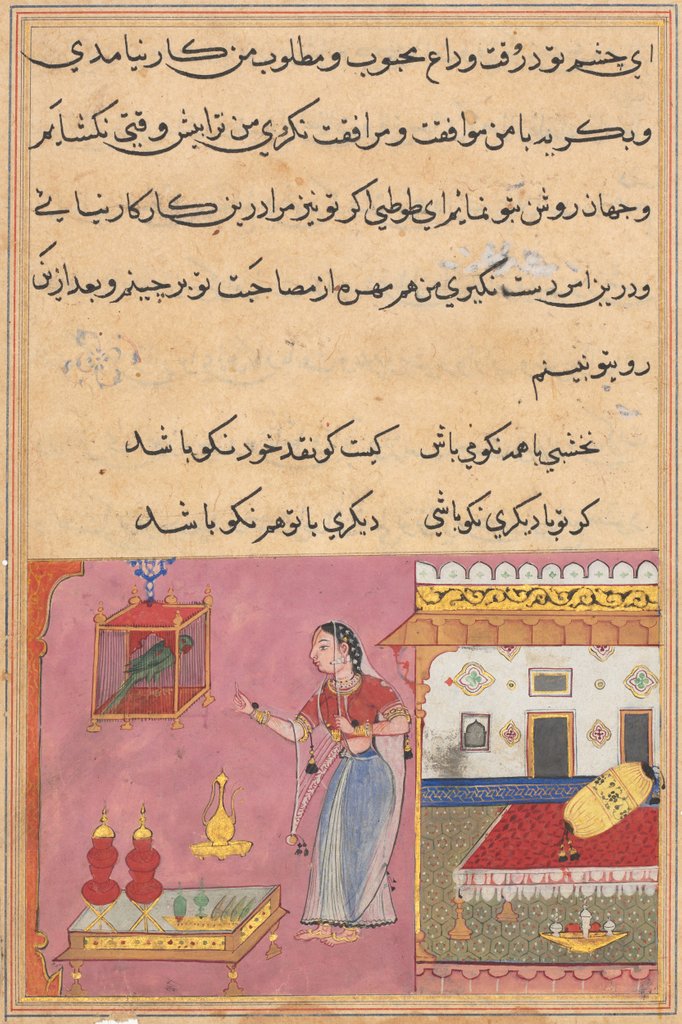 ای چشم تو در وقت وداع محبوب و مطلوب من کار نیامدی
و بکریه با من موافقت و مرافقت نکردی من ترا پیش وقتی نکشایم
و جهان روشن بتو نمایم ای طوطی اکر تو نیز مرا درین کار کار نیائے
و درین امر دست نگیری من هم مهره از مصاحبت تو بر چینم و بعد ازین
رویتو نبینم
نخشبی با همه نکو می باش کیست کو نقد خود نکو باشد
کر تو با دیکری نکو باشی دیکری با تو هم نکو باشد